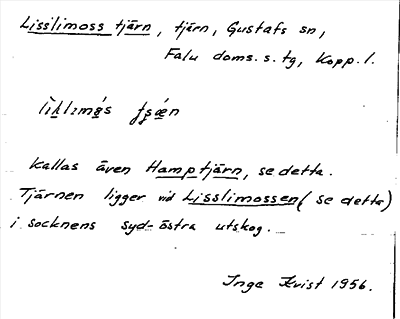 Lisslimoss tjärn, tjärn, Gustafs sn,
Falu doms. s. tg, Kopp. l.
kallas även Hamptjärn, se detta.
Tjärnen ligger vid Lisslimossen (se detta)
i socknens syd-östra utskog.
Inga Kvist 1956.